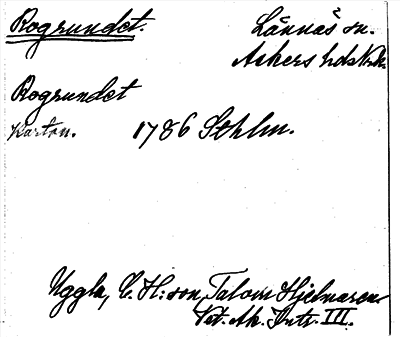 Rogrundet. Lännäs sn.
Askers hd. Nrk.
Rogrundet
Kartan. 1786 Sthlm.
Uggla, C. H:son, Tal om Hjelmaren
Vet. Ak. Intr. III.